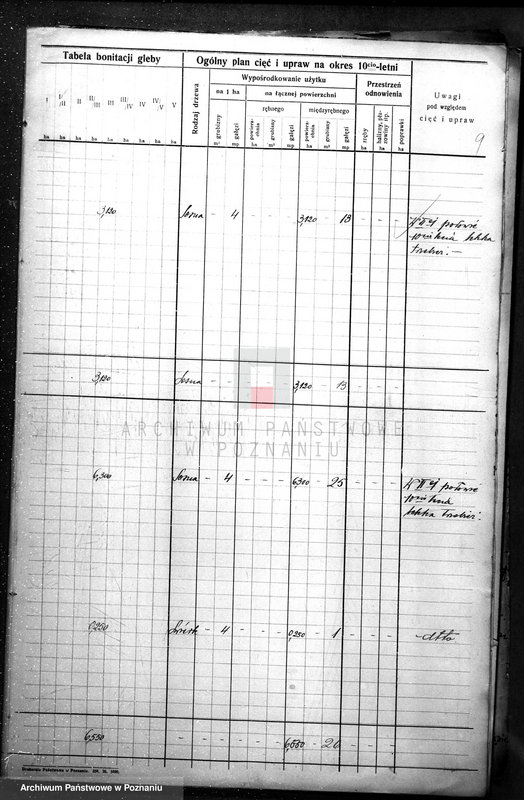 Tabela bonitacji gleby
Ogólny plan cięć i upraw na okres 10cio-letni
Uwagi
pod względem
cięć i upraw
9
Rodzaj drzewa
Wypośrodkowanie użytku
Przestrzeń
odnowienia
na 1 ha
na łącznej powierzchni
rębnego
międzyrębnego
I I/II II II/III III III/IV IV IV/V V
grubizny gałęzi powierzchnia grubizny gałęzi powierzchnia grubizny gałęzi zręby poprawki
ha ha ha ha ha ha ha ha ha m³ mp ha m³ mp ha m³ mp ha ha ha
3,120 Sosna - 4 - - - 3,120 - 13 - - -
W II ej połowie
lekka
trzebież.-
3,120 Sosna - - - - - 3,120 - 13 - - -
ARCHIWUM PAŃSTWOWE
W POZNANIU
6,300 Sosna - 4 - - - 6,300 - 25 - - -
W II ej połowie
lekka trzebież.
0,250 Świerk - 4 - - - 0,250 - 1 - - -
dtto
6,550 6,550 - 26 - - -
Drukarnia Państwowa w Poznaniu.
Archiwum Państwowe w Poznaniu